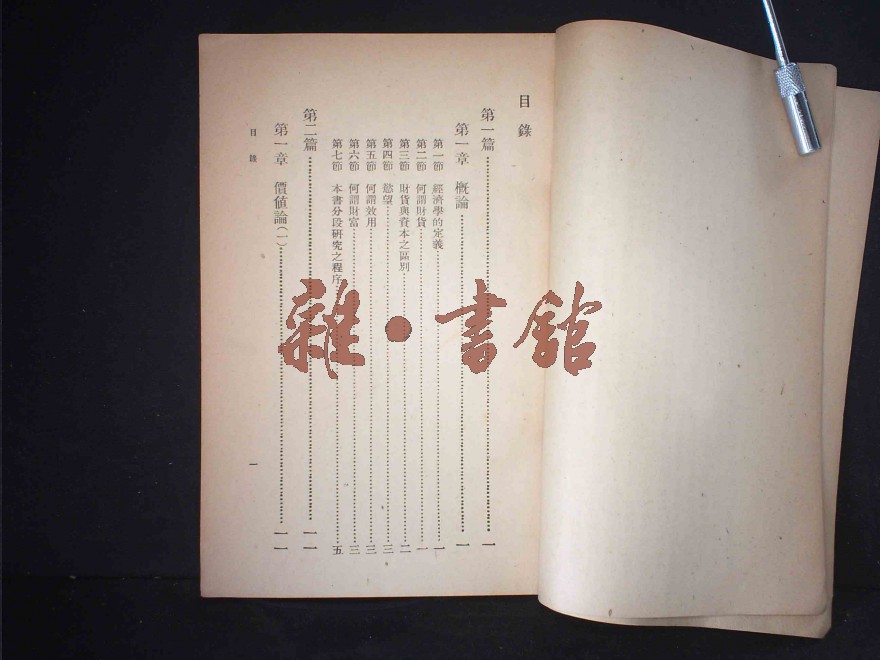 目錄
第一篇……一
第一章 概論……一
第一節 經濟學的定義……一
第二節 何謂財貨……一
第三節 財貨與資本之區別……二
第四節 慾望……三
第五節 何謂效用……三
第六節 何謂財富……三
第七節 本書分段研究之程序……五
第二篇……一一
第一章 價值論(一)……一一
目錄
一
雜•書館